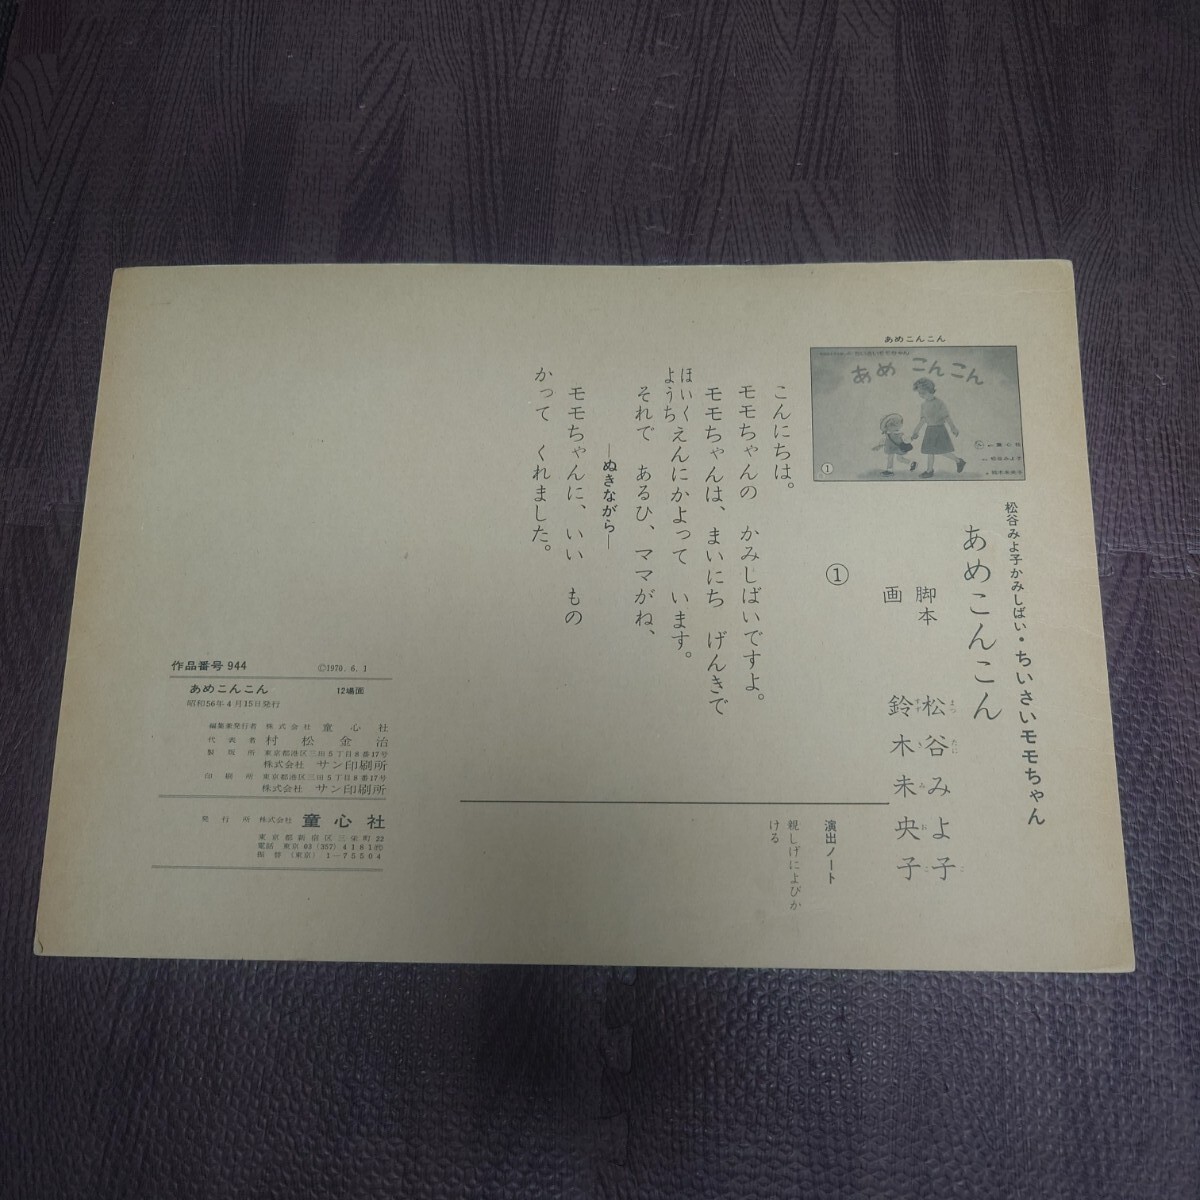 松谷みよ子かみしばい・ちいさいモモちゃん
あめこんこん
脚本　松谷みよ子
画　鈴木未央子
あめこんこん
あめ こんこん
①
①
こんにちは。
モモちゃんの　かみしばいですよ。
モモちゃんは、まいにち　げんきで
ほいく
ようち
えんにかよって　います。
それで　あるひ、ママがね、
―ぬきながら―
モモちゃんに、いい　もの
かって　くれました。
演出ノート
親しげによびか
ける
作品番号 944　©1970. 6. 1
あめこんこん　12場面
昭和56年4月15日発行
編集兼発行者　株式会社　童心社
代表者　村松金治
製版所　東京都港区三田5丁目8番17号
株式会社　サン印刷所
印刷所　東京都港区三田5丁目8番17号
株式会社　サン印刷所
発行所　株式会社　童心社
東京都新宿区三栄町22
電話　東京 03 (357) 4181㈹
振替（東京）1-75504